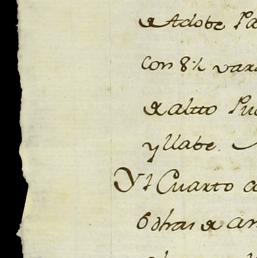 de Adobe Pa
con 8½ vara
de altto Pue
y llabe.
Yt Cuarto d
6 dhas de an